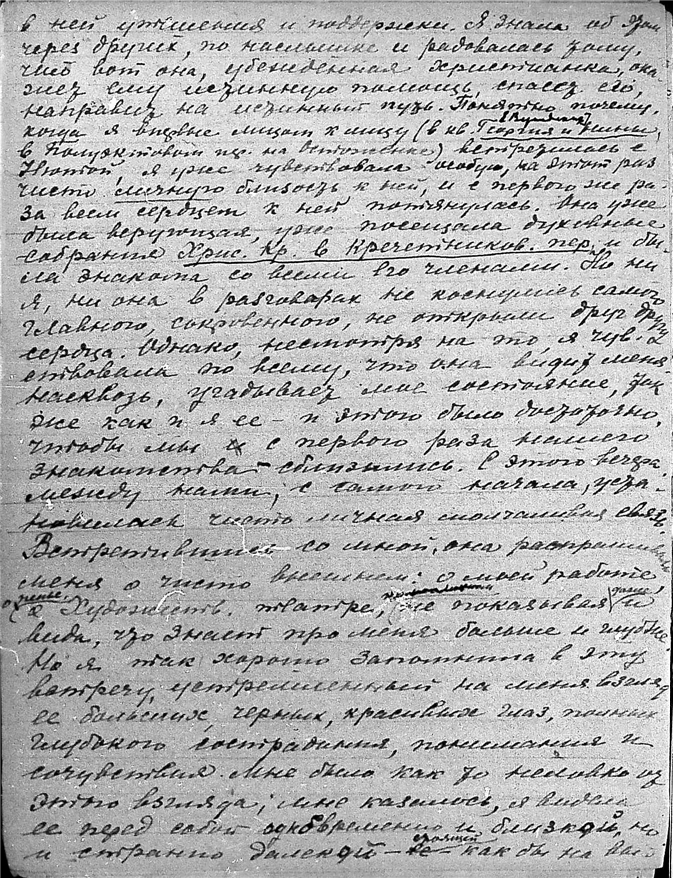 в ней утешения и поддержки. Я знала об этом
через других, по наслышке и радовалась тому,
что вот она, убежденная христианка, ока-
жет ему истинную помощь, спасет его,
направит на истинный путь. Понятно почему,
когда я впервые лицом к лицу (в кв. Георгия и Нины
в Полуэктовом пер. на Остоженке) встретилась с
Нютой, я уже чувствовала особую, на этот раз
чисто личную близость к ней, и с первого же ра-
за всем сердцем к ней потянулась. Она уже
была верующая, уже посещала духовные
собрания Хрис. кр. в Кречетников. пер. и бы-
ла знакома со всеми его членами. Но ни
я, ни она в разговорах не коснулись самого
главного, сокровенного, не открыли друг другу
сердца. Однако, несмотря на то, я чув-
ствовала по всему, что она видит меня
насквозь, угадывает мое состояние, так
же как и я ее – и этого было достаточно,
чтобы мы с первого раза нашего
знакомства сблизились. С этого вечера
между нами, с самого начала, уста-
новилась чисто личная молчаливая связь.
Встретившись со мной, она расспрашивала
меня о чисто внешнем: о моей работе,
о Художеств. театре, не показывая и
вида, что знает про меня больше и глубже.
Но я так хорошо запомнила в эту
встречу, устремленный на меня взгляд
ее больших, черных, красивых глаз, полных
глубокого сострадания, понимания и
сочувствия. Мне было как то неловко от
этого взгляда; мне казалось, я видела
ее перед собой одновременно и близкой, но
и странно далекой – стоящей как бы на